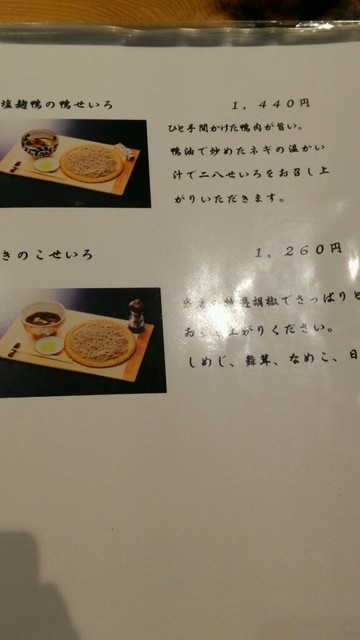 塩麹鴨の鴨せいろ
１，４４０円
ひと手間かけた鴨肉が旨い。
鴨油で炒めたネギの温かい
汁で二八せいろをお召し上
がりいただきます。
きのこせいろ
１，２６０円
胡椒でさっぱりと
お召し上がりください。
しめじ、舞茸、なめこ、日